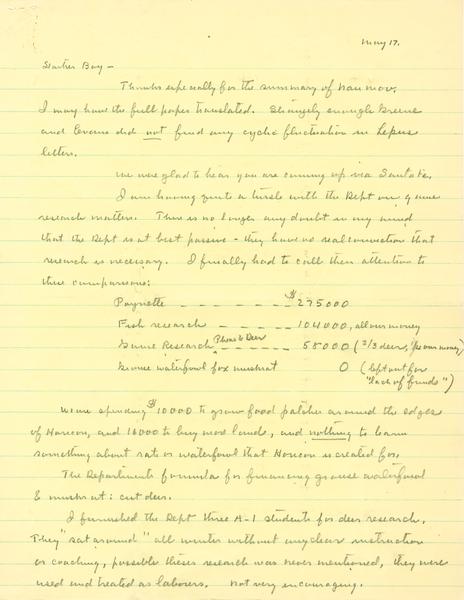 May 17.
Brother Boy –
Thanks especially for the summary of Naumov.
I may have the full paper translated. Strangely enough Greene
and Evans did not find any cyclic fluctuation in Lepus
litters.
We were glad to hear you are coming up via Santa Fe.
I am having quite a tussle with the Dept on game
research matters. There is no longer any doubt in my mind
that the Dept is at best passive – they have no real conviction that
research is necessary. I finally had to call their attention to
these comparisons:
Poynette – – – – – – $275000
Fish research – – – – 104000, all our money
Game Research Pheas & Deer – – – 55000 (2/3 deer, our money)
Grouse waterfowl fox muskrat 0 (left out for "lack of funds")
We're spending $10000 to grow food patches around the edges
of Horicon, and 16000 to buy more lands, and nothing to learn
something about rats or waterfowl that Horicon is created for.
The Department's formula for financing grouse waterfowl
& muskrat: cut deer.
I furnished the Dept three A-1 students for deer research.
They "sat around" all winter without any clear instruction
or coaching, possible theses research was never mentioned, they were
used and treated as labourers. Not very encouraging.